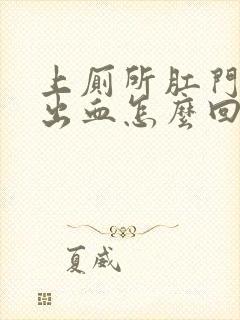 上厠所肛門
出血怎麼回
夏威